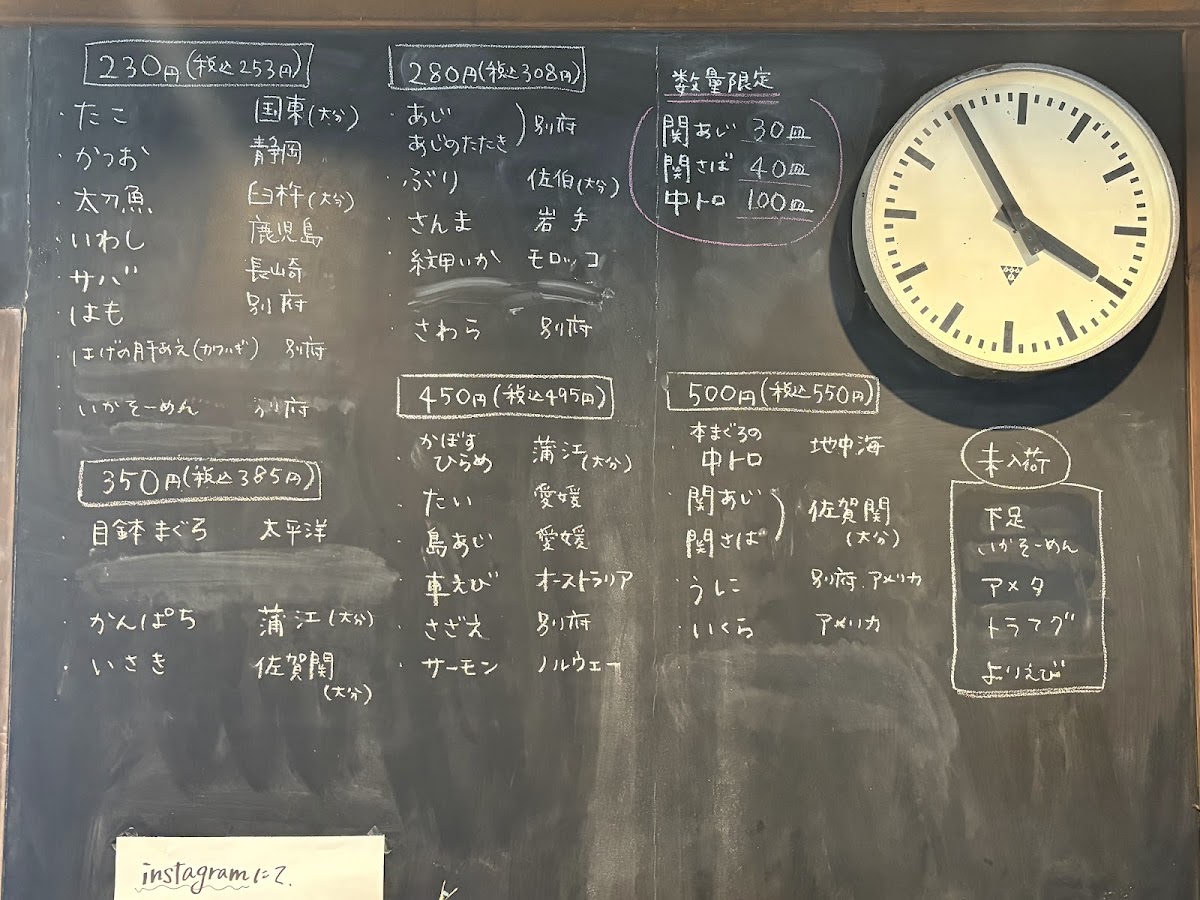 230円(税込253円)
・たこ 国東(大分)
・かつお 静岡
・太刀魚 臼杵(大分)
・いわし 鹿児島
・サバ 長崎
・はも 別府
・はげの肝あえ(カワハギ) 別府
・
・いかそーめん 別府
350円(税込385円)
・目鉢まぐろ 太平洋
・かんぱち 蒲江(大分)
・いさき 佐賀関
(大分)
280円(税込308円)
・あじ
あじのたたき 別府
・ぶり 佐伯(大分)
・さんま 岩手
・紋甲いか モロッコ
・さわら 別府
450円(税込495円)
・かぼす
ひらめ 蒲江(大分)
・たい 愛媛
・島あじ 愛媛
・車えび オーストラリア
・さざえ 別府
・サーモン ノルウェー
数量限定
関あじ 30皿
関さば 40皿
中トロ 100皿
500円(税込550円)
・本まぐろの
中トロ 地中海
・関あじ
関さば 佐賀関
(大分)
・うに 別府.アメリカ
・いくら アメリカ
未入荷
下足
いかそーめん
アメタ
トラフグ
よりえび
instagramにて.